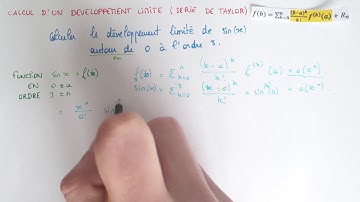 CALCUL D'UN DEVELOPPEMENT LIMITE (SERIE DE TAYLOR)
f(b) = Σⁿₖ₌₀ (b−a)ᵏ/k! f⁽ᵏ⁾(a) + Rₙ
Calculer le développement limité de sin(x)
autour de 0 à l'ordre 3.
en
FONCTION sin x = f(b)
EN 0 = a
ORDRE 3 = n
f(b) = Σⁿₖ₌₀ (b − a)ᵏ/k! f⁽ᵏ⁾(a) + o(xⁿ)
sin(x) = Σ³ₖ₌₀ (x − 0)ᵏ/k! × sin⁽ᵏ⁾(0) + o(x³)
= x⁰/0!